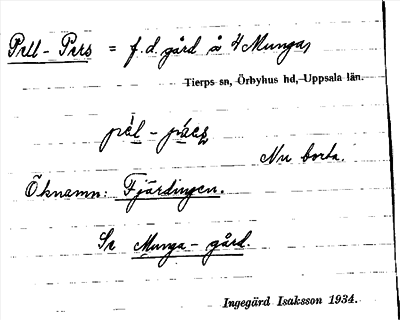 Pell-Pers = f.d. gård å 4 Munga,
Tierps sn, Örbyhus hd, Uppsala län.
Nu borta.
Öknamn: Fjärdingen.
Se Munga-gård.
Ingegärd Isaksson 1934.